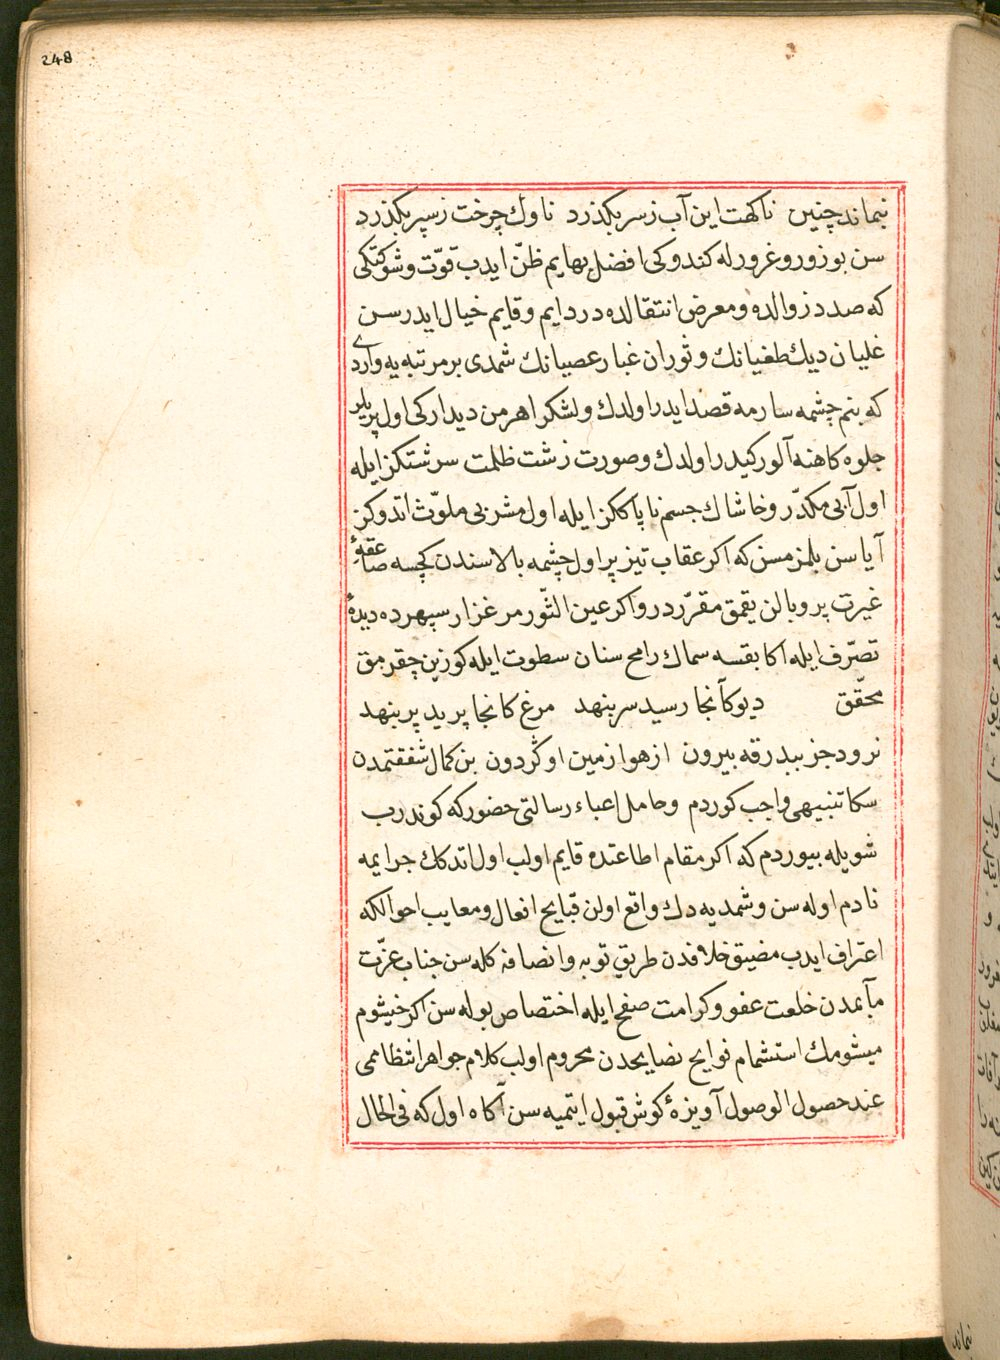 248
نماند چنین ناکهت این آب زسر بکذرد ناوك چرخت زسپر بکذرد
سن بو زور و غرورله کندوکی افضل بهایم ظنّ ایدب قوّت و شوکتکی
که صدد زوالده و معرض انتقالده در دایم و قایم خیال ایدرسن
غلیان دیك طغیانك و ثوران غبار عصیانك شمدی بر مرتبه یه واردی
که بنم چشمه سارمه قصد ایدر اولدك و لشکر اهرمن دیدارکی اول پریلر
جلوه کاهنه آلور کیدر اولدك و صورت زشت ظلمت سرشتکز ایله
اول آبی مکدّر و خاشاك جسم ناپاککز ایله اول مشربی ملوّث اتدوکز
آیا سن بلمزمسن که اکر عقاب تیز پر اول چشمه بالاسندن کچسه صاعقۀ
غیرت پر و بالن یقمق مقرّر در و اکر عین الثّور مرغزار سپهرده دیدۀ
تصرّف ایله اکا بقسه سماك رامح سنان سطوت ایله کوزین چقرمق
محقّق دیو کآنجا رسید سر بنهد مرغ کانجا پرید پر بنهد
نرود جز ببدرقه بیرون از هوا زمین او گردون بن کمال شفقتمدن
سکا تنبیهی واجب کوردم و حامل اعباء رسالتی حضورکه کوندرب
شویله بیوردم که اکر مقام اطاعتده قایم اولب اول اتدکك جرایمه
نادم اوله سن و شمدیه دك واقع اولن قبایح افعال و معایب احوالکه
اعتراف ایدب مضیق خلافدن طریق توبه و انصافه کله سن جناب عزّت
مآبمدن خلعت عفو و کرامت صفح ایله اختصاص بوله سن اکر خیشوم
میشومك استشمام نوایح نصایحدن محروم اولب کلام جواهر انتظاممی
عند حصول الوصول آویزۀ کوش قبول ایتمیه سن آکاه اول که فی الحال